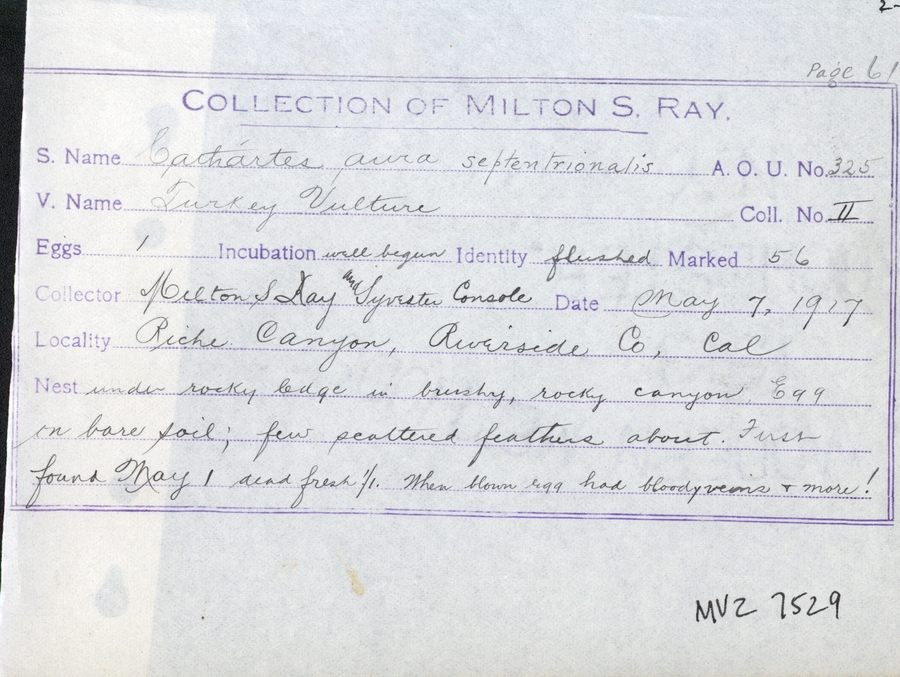 2-
Page 61
COLLECTION OF MILTON S. RAY.
S. Name Cathartes aura septentrionalis A. O. U. No. 325
V. Name Turkey Vulture Coll. No. II
Eggs 1 Incubation well begun Identity flushed Marked 56
Collector Milton S Ray and Sylvester Console Date May 7, 1917
Locality Riche Canyon, Riverside Co, Cal
Nest under rocky ledge in brushy, rocky canyon Egg
on bare soil; few scattered feathers about. First
found May 1 dead fresh 1/1. When blown egg had bloody veins & more!
MVZ 7529